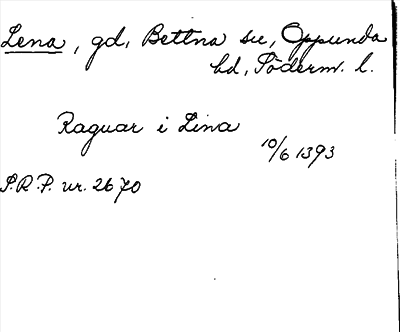 Lena, gd, Bettna sn, Oppunda
hd, Söderm. l.
Ragnar i Lina
10/6 1393
S.R.P. nr. 2670